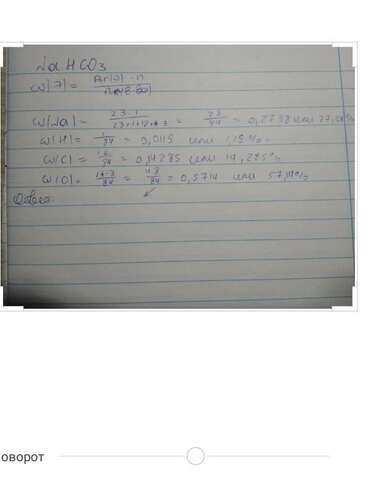 NaHCO3
w(Э) = Ar(Э) · n
w(Na) = 23·1 = 23/84 = 0,2738 или 27,
w(H) = 1/84 = 0,0119 или 1,19%
w(C) = 12/84 = 0,14285 или 14,285%
w(O) = 16·3/84 = 48/84 = 0,5714 или 57,14%
Ответ:
оворот